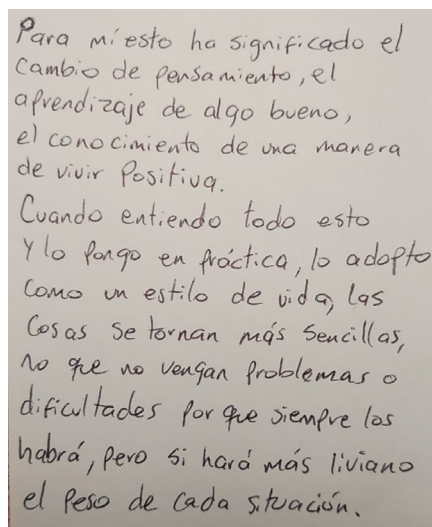 Para mí esto ha significado el
cambio de pensamiento, el
aprendizaje de algo bueno,
el conocimiento de una manera
de vivir Positiva.
Cuando entiendo todo esto
y lo pongo en práctica, lo adopto
como un estilo de vida, las
cosas se tornan más sencillas,
no que no vengan problemas o
dificultades por que siempre los
habrá, pero si hará más liviano
el peso de cada situación.